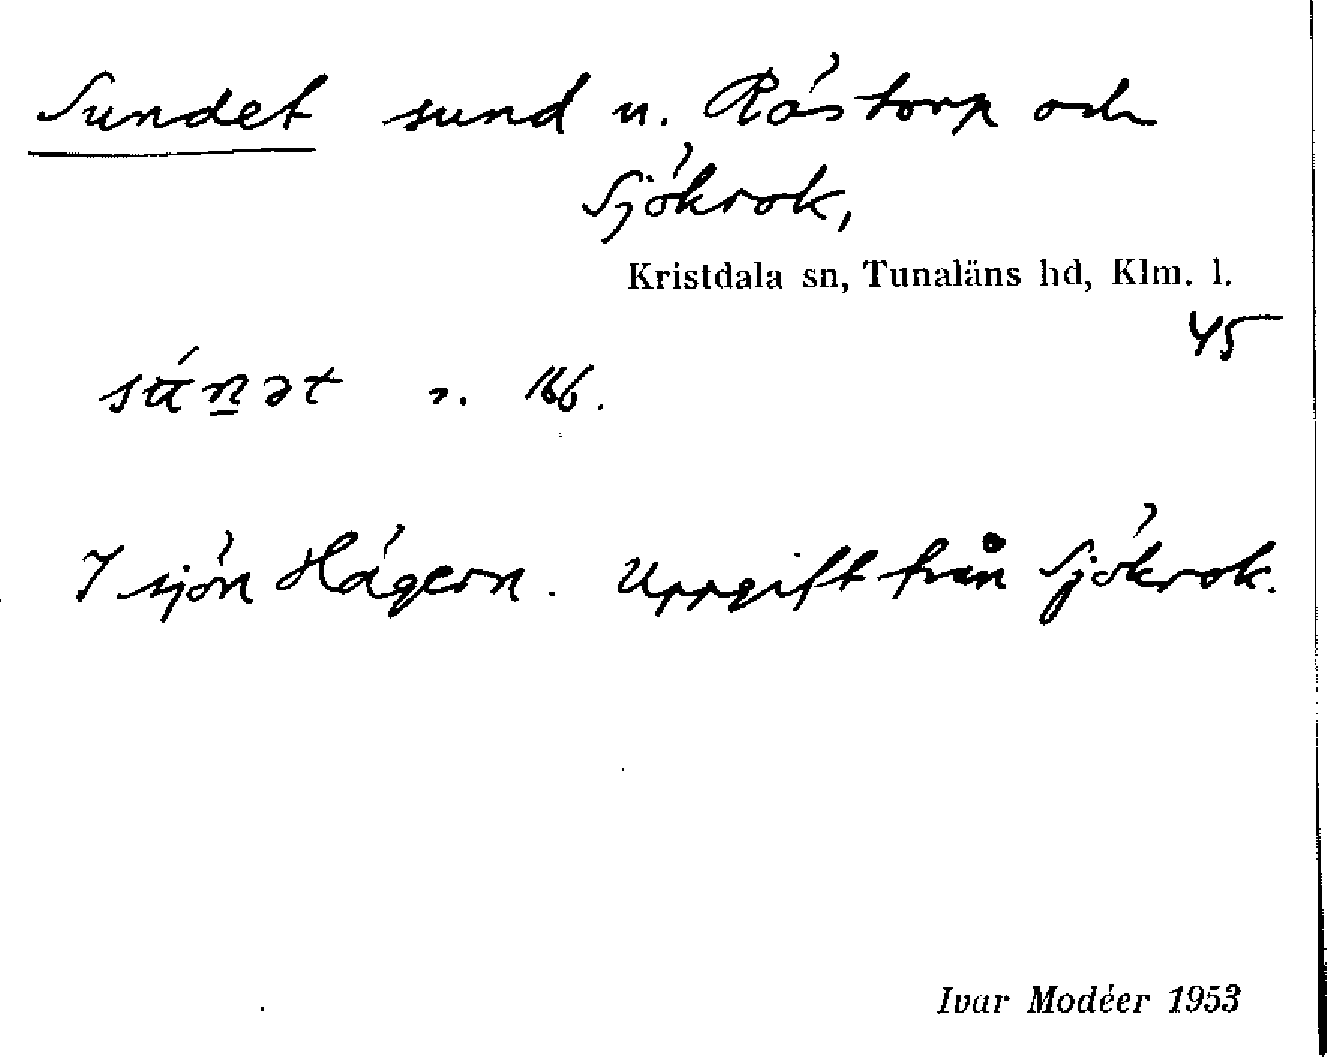 Sundet sund n. Röstorp och
Sjökrok,
Kristdala sn, Tunaläns hd, Klm. l.
45
I sjön Hägern. Uppgift från Sjökrok.
Ivar Modéer 1953